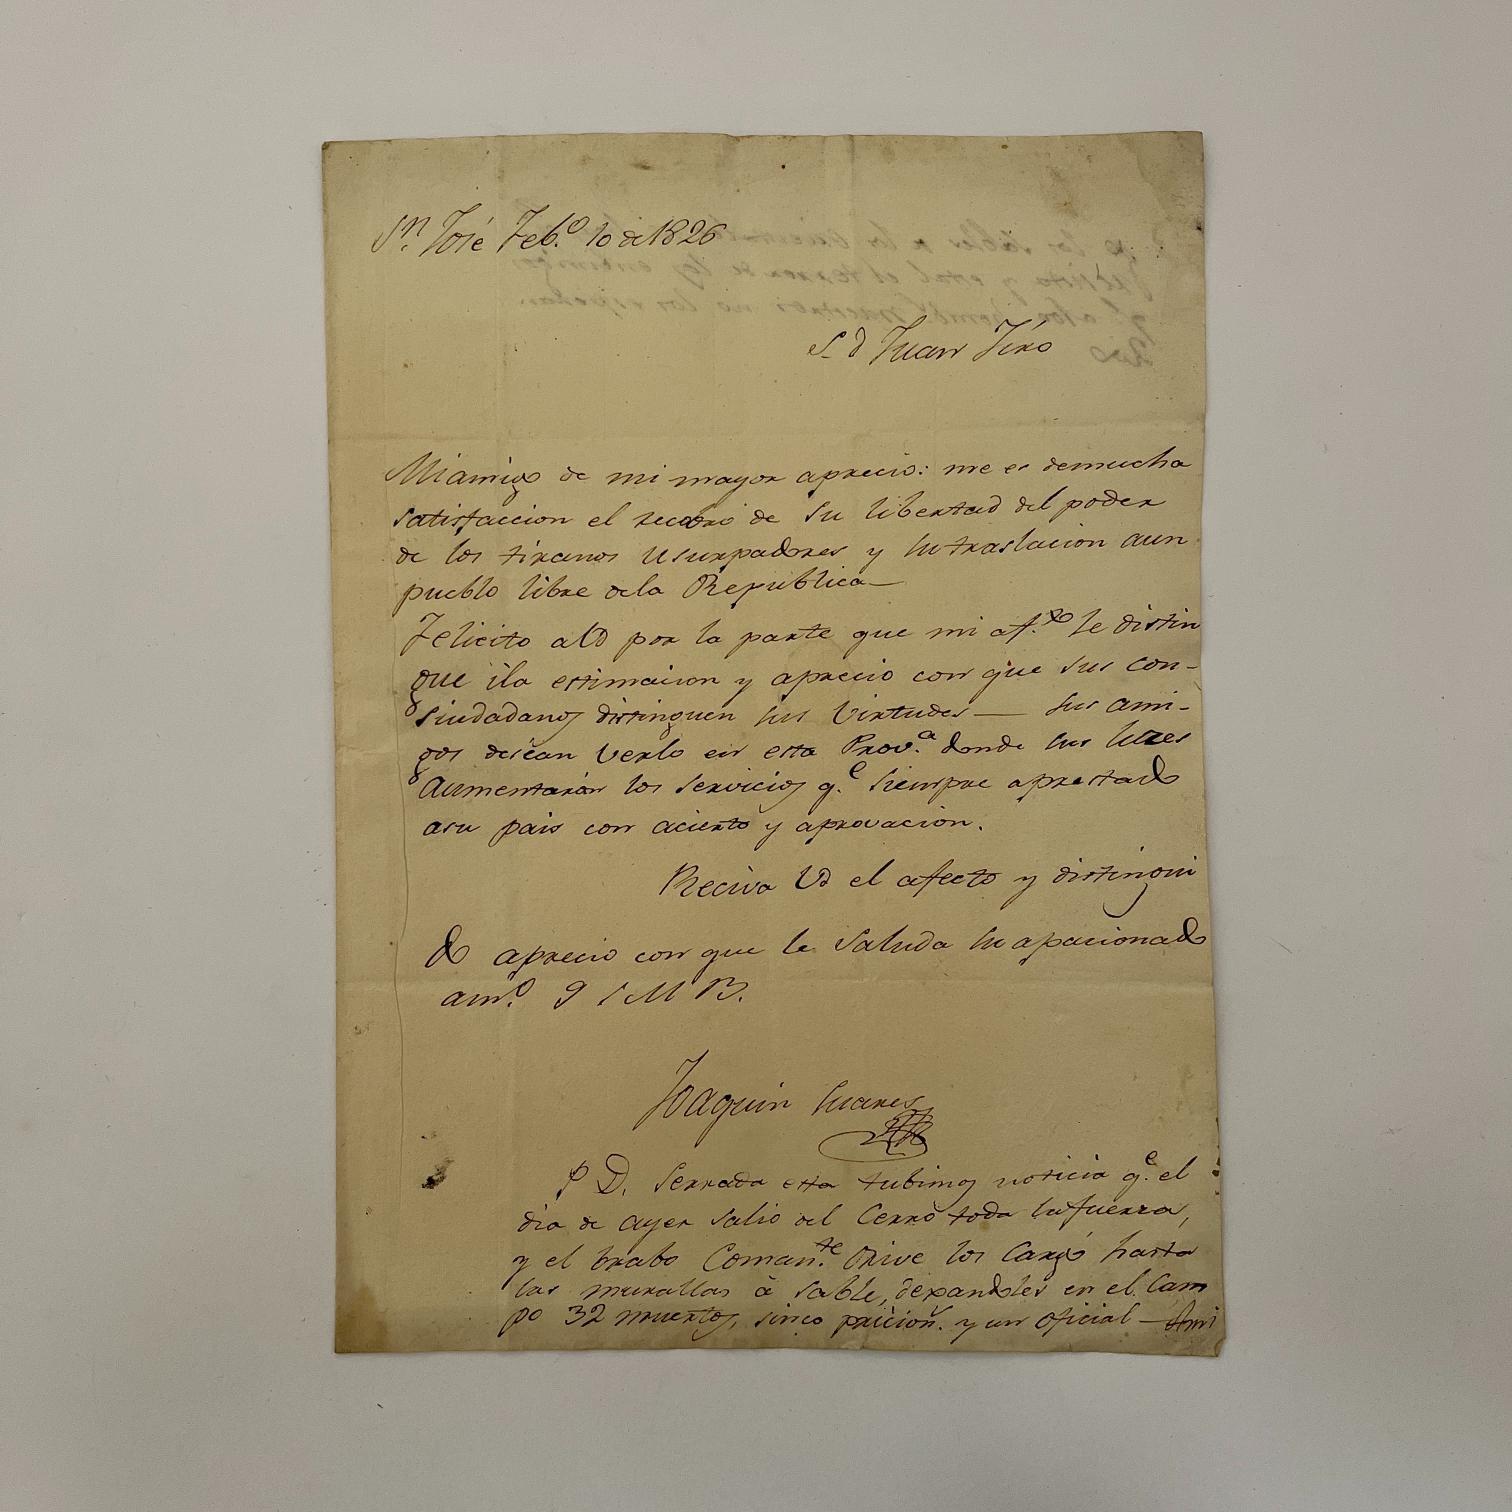 Sn. José Febo. 10 de 1826
S. d Juan Jiro
Mi amigo de mi mayor aprecio: me es demucha
satisfaccion el recobro de su libertad del poder
de los tiranos usurpadores y su traslacion aun
pueblo libre dela Republica—
Felicito a Vd por la parte que mi af.to le distin
gue ila estimacion y aprecio con que sus con-
siudadanos distinguen sus Virtudes— sus ami-
gos desean verlo en esta Prov.a donde sus luces
aumentarán los servicios q.e siempre aprestado
asu pais con acierto y aprovacion.
Reciva Vd el afecto y distingui
do aprecio con que le saluda su apacionado
am.o q S M B.
Joaquin Suares
P D. Serrada esta tubimos noticia q.e el
dia de ayer salio del Cerro toda la fuerza,
y el brabo Coman.te Orive los cargó hasta
las murallas à sable, dexandoles en el Cam
po 32 muertos, sinco pricion.s y un oficial—